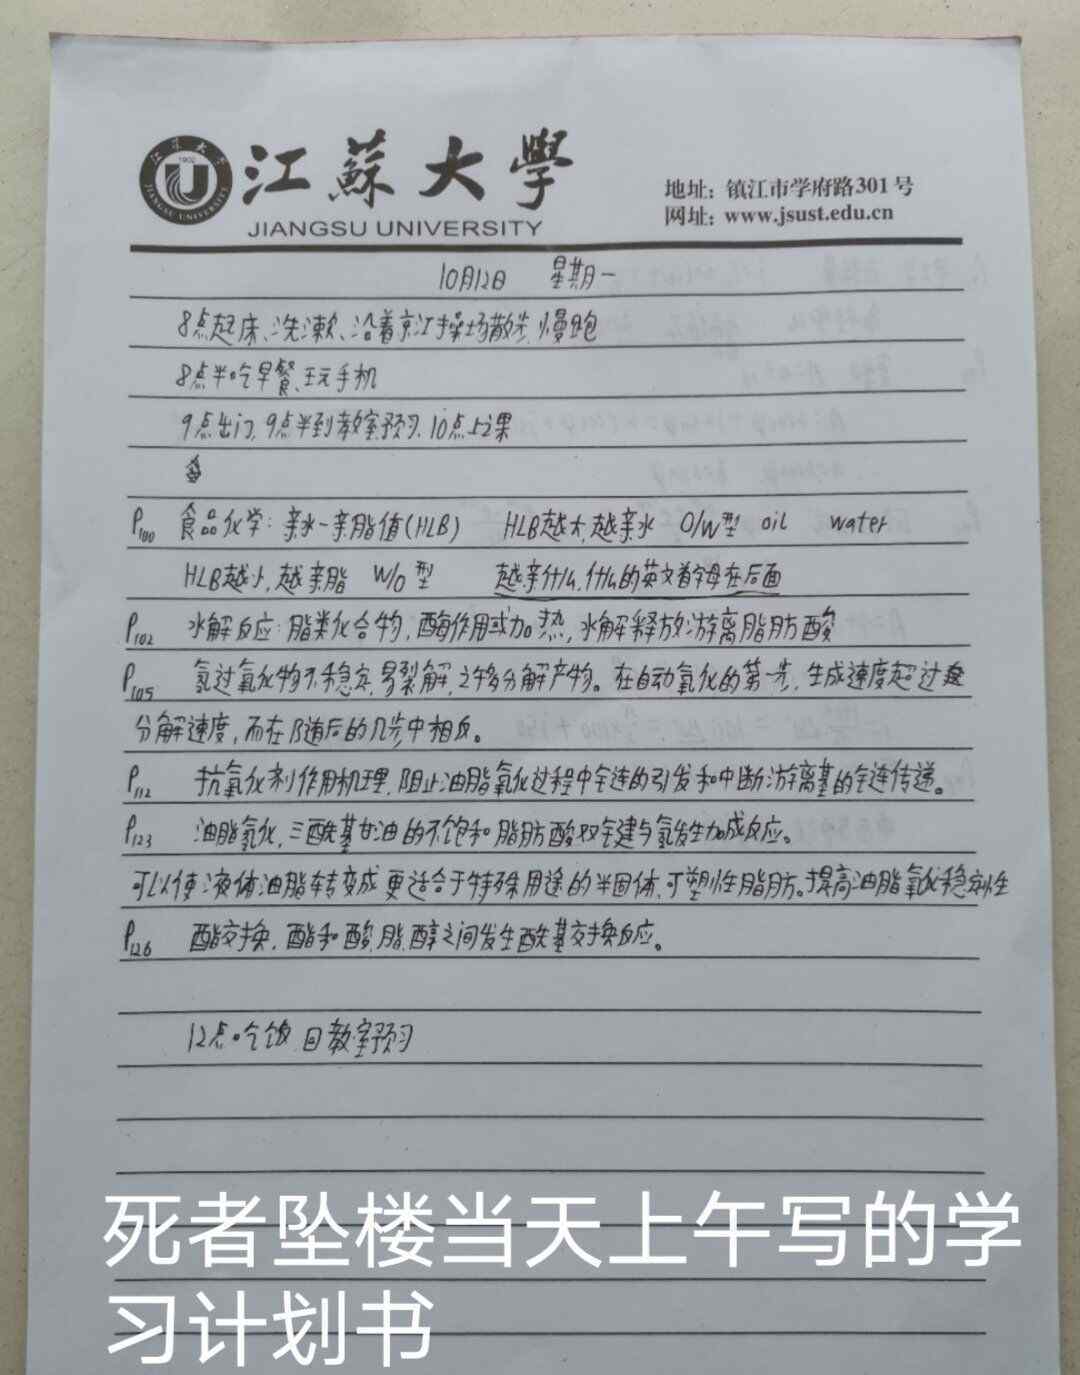 江蘇大學
JIANGSU UNIVERSITY
地址：镇江市学府路301号
网址：www.jsust.edu.cn
10月12日 星期一
8点起床、洗漱、沿着京江操场散步,慢跑
8点半吃早餐、玩手机
9点出门,9点半到教室预习,10点上课
P100 食品化学：亲水-亲脂值(HLB) HLB越大,越亲水 O/W型 oil water
HLB越小,越亲脂 W/O型 越亲什么,什么的英文首字母在后面
P102 水解反应:脂类化合物,酶作用或加热,水解释放游离脂肪酸
P105 氢过氧化物不稳定,易裂解,之多分解产物。在自动氧化的第一步,生成速度超过
分解速度,而在随后的几步中相反。
P112 抗氧化剂作用机理,阻止油脂氧化过程中链的引发和中断游离基的链传递。
P123 油脂氢化,三酰基甘油的不饱和脂肪酸双键与氢发生加成反应。
可以使液体油脂转变成更适合于特殊用途的半固体,可塑性脂肪。提高油脂氧化稳定性
P126 酯交换,酯和酸,脂,醇之间发生酰基交换反应。
12点吃饭 回教室预习
死者坠楼当天上午写的学
习计划书